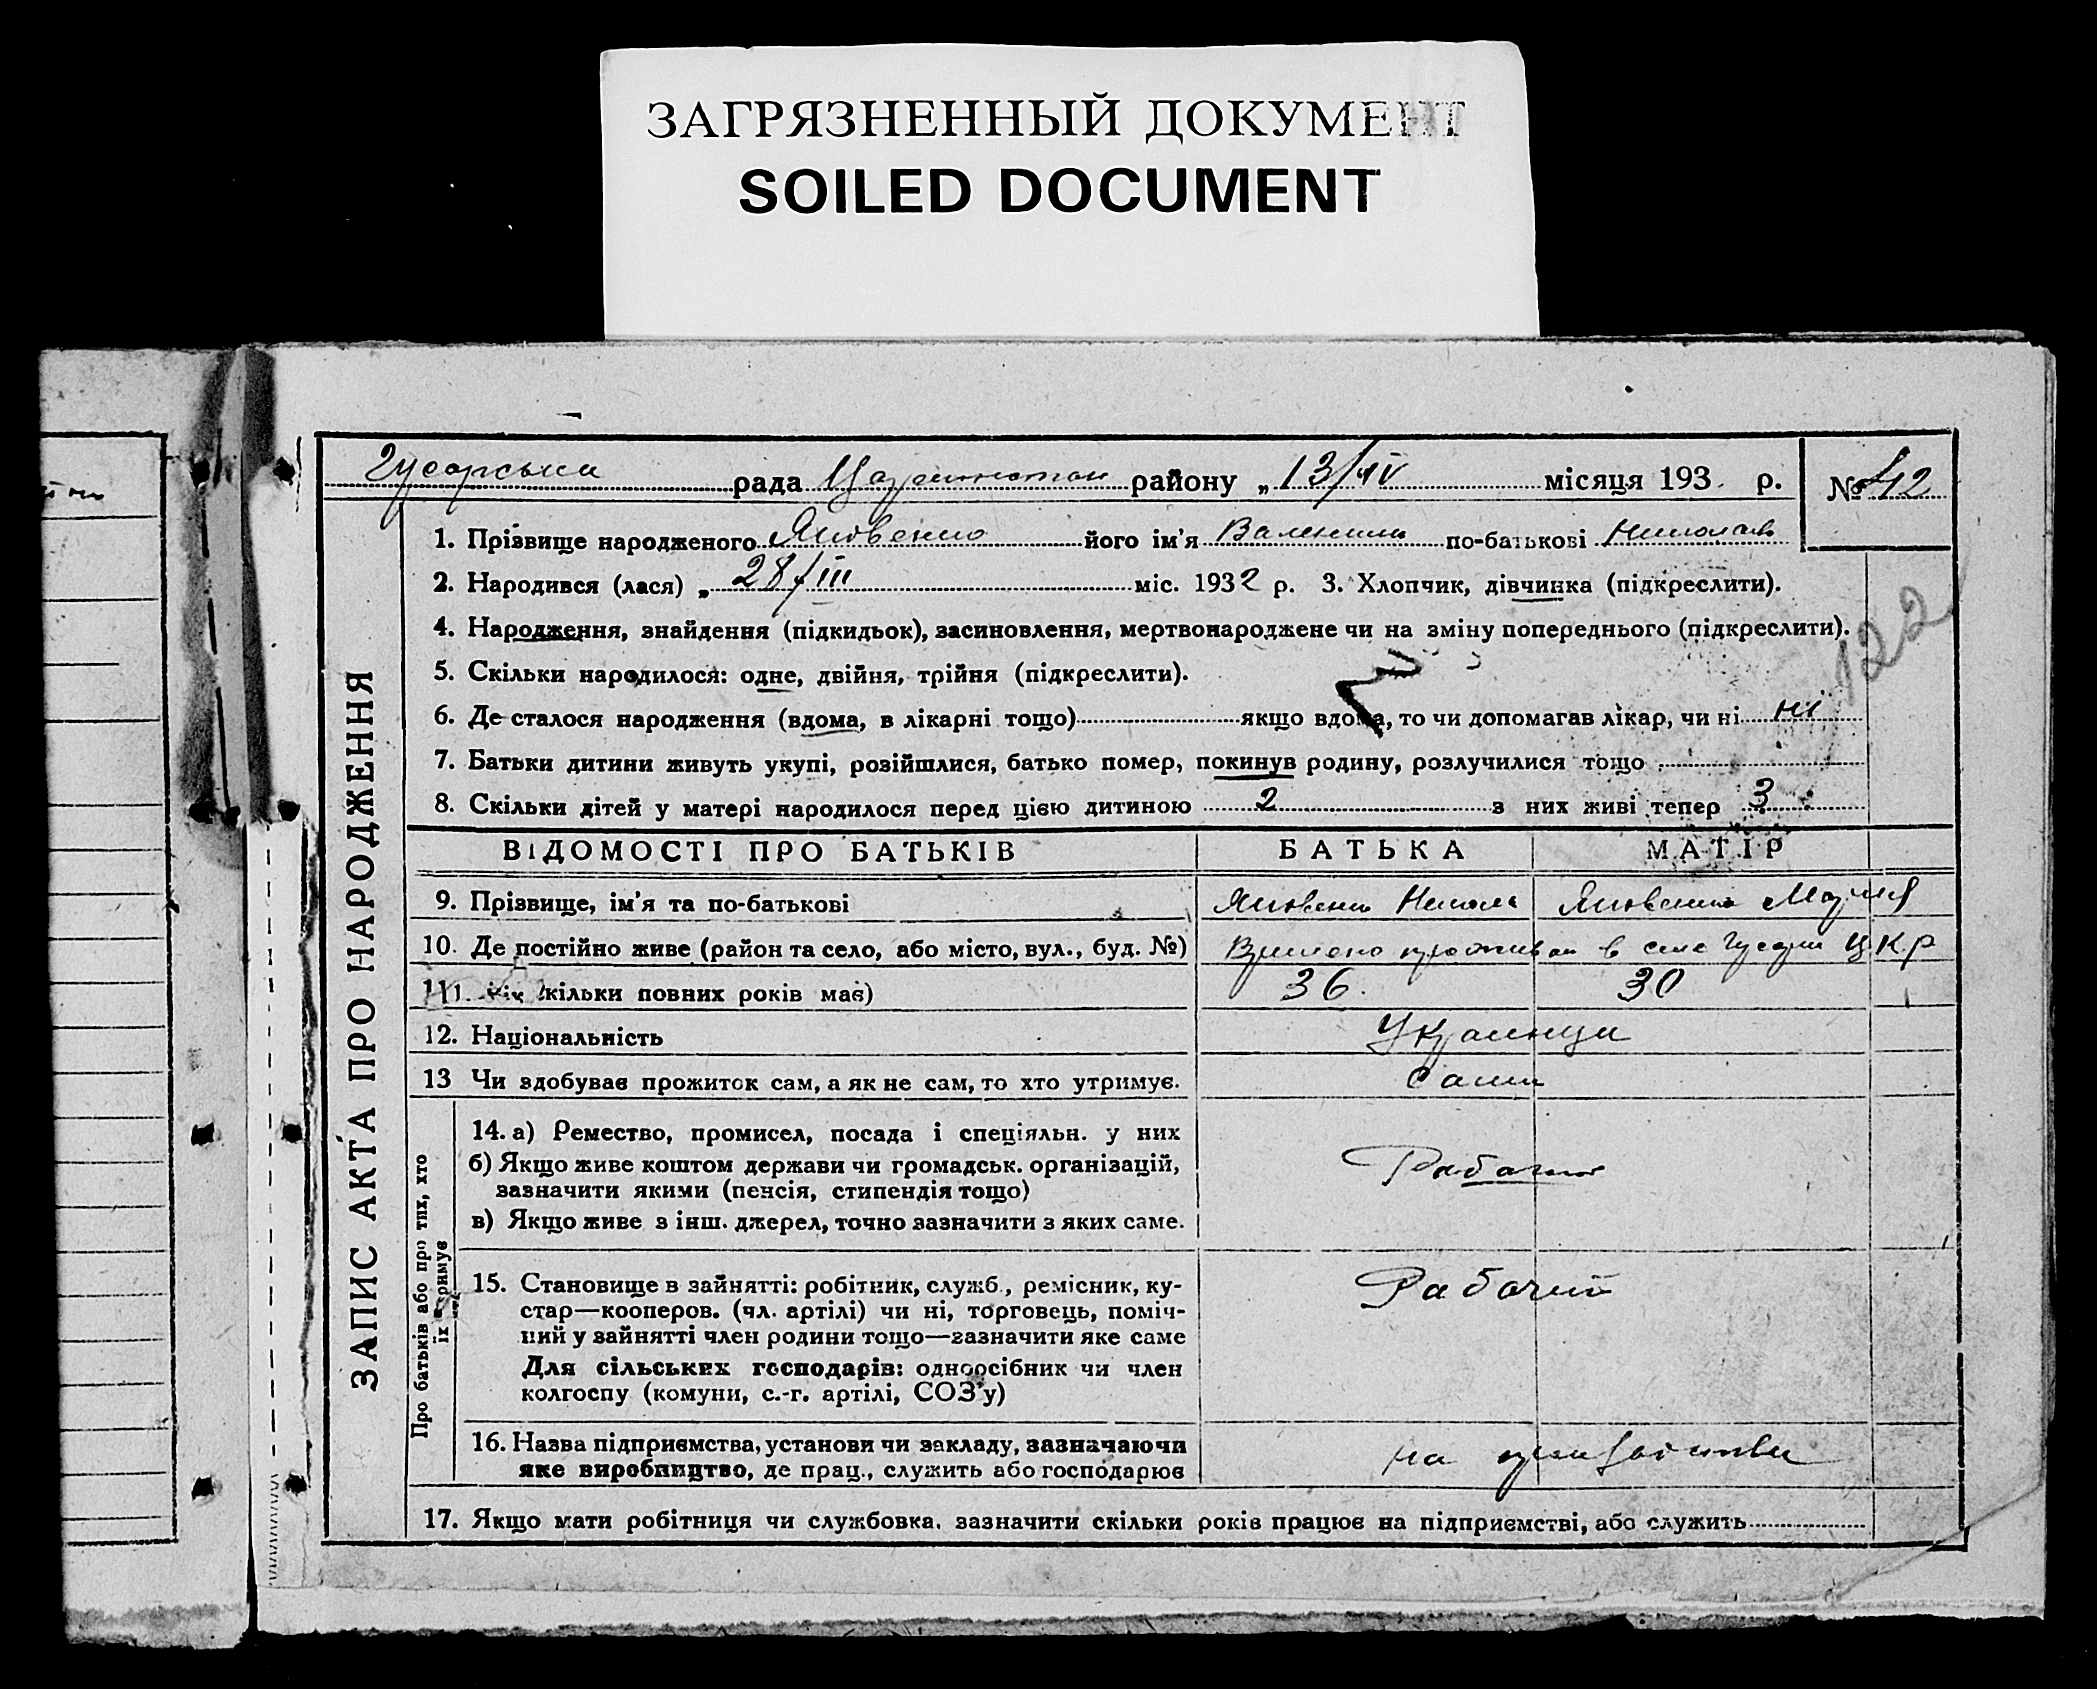 ЗАГРЯЗНЕННЫЙ ДОКУМЕНТ
SOILED DOCUMENT
Гусарська рада району „ 13/IV місяця 193 р. № 42
ЗАПИС АКТА ПРО НАРОДЖЕННЯ
1. Прізвище народженого Яковенко його ім'я по-батькові
2. Народився (лася) „ 28/III міс. 1932 р. 3. Хлопчик, дівчинка (підкреслити).
4. Народження, знайдення (підкидьок), засиновлення, мертвонароджене чи на зміну попереднього (підкреслити).
122
5. Скільки народилося: одне, двійня, трійня (підкреслити).
6. Де сталося народження (вдома, в лікарні тощо) якщо вдома, то чи допомагав лікар, чи ні ні
7. Батьки дитини живуть укупі, розійшлися, батько помер, покинув родину, розлучилися тощо
8. Скільки дітей у матері народилося перед цією дитиною 2 з них живі тепер 3
ВІДОМОСТІ ПРО БАТЬКІВ БАТЬКА МАТІР
9. Прізвище, ім'я та по-батькові Яковенко Никола Яковенко Мария
10. Де постійно живе (район та село, або місто, вул., буд. №) в селе Ц.К.Р
11. Вік (скільки повних років має) 36. 30
12. Національність Украинци
13 Чи здобуває прожиток сам, а як не сам, то хто утримує. Сами
Про батьків або про тих, хто їх утримує
14. а) Ремество, промисел, посада і спеціяльн. у них
б) Якщо живе коштом держави чи громадськ. організацій,
зазначити якими (пенсія, стипендія тощо)
в) Якщо живе з інш. джерел, точно зазначити з яких саме.
15. Становище в зайнятті: робітник, служб., ремісник, ку-
стар—кооперов. (чл. артілі) чи ні, торговець, поміч-
ний у зайнятті член родини тощо—зазначити яке саме
Рабочий
Для сільських господарів: одноосібник чи член
колгоспу (комуни, с.-г. артілі, СОЗ'у)
16. Назва підприємства, установи чи закладу, зазначаючи
яке виробництво, де прац., служить або господарює
на
17. Якщо мати робітниця чи службовка, зазначити скільки років працює на підприємстві, або служить